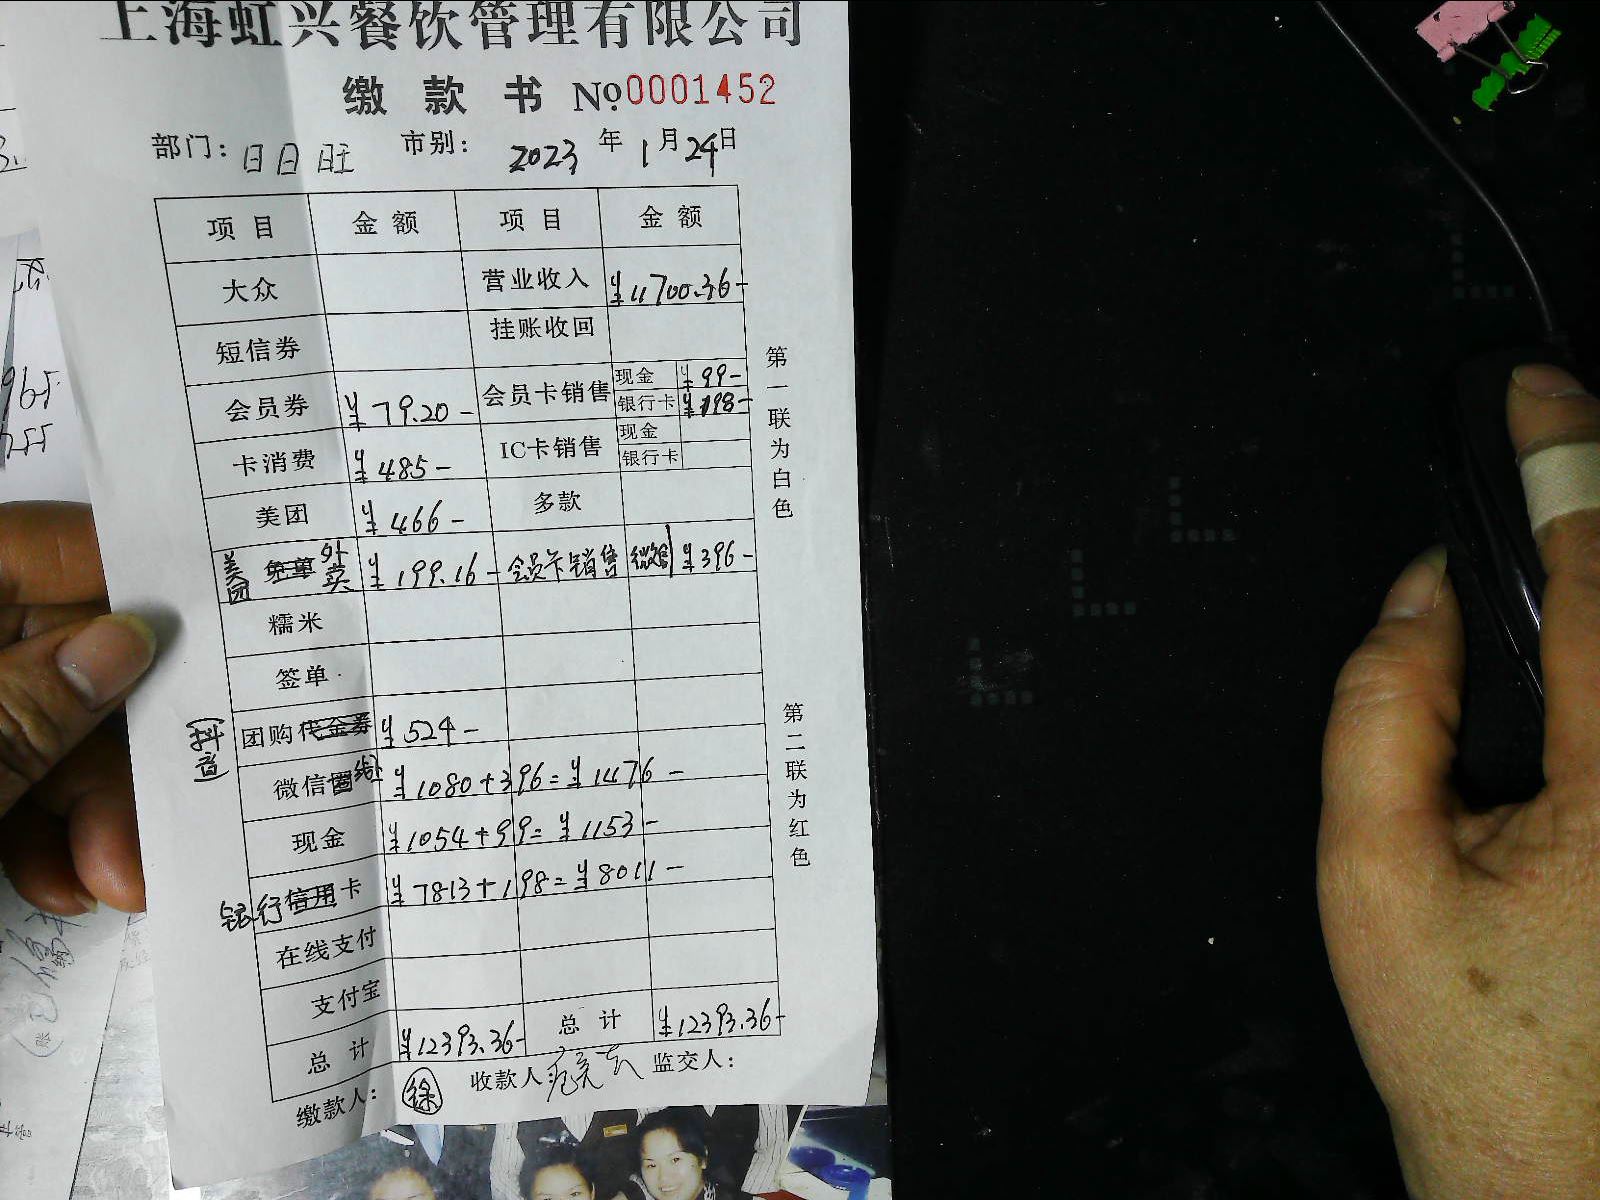 上海虹兴餐饮管理有限公司
缴款书 No 0001452
部门: 日日旺 市别: 2023 年 1 月 24 日
项目 金额 项目 金额
大众 营业收入 ¥11700.36-
短信券 挂账收回
会员券 ¥79.20- 会员卡销售 现金 ¥99-
银行卡 ¥198-
卡消费 ¥485- IC卡销售 现金
银行卡
美团 ¥466- 多款
美团 免单 外卖 ¥199.16- 会员卡销售 微信 ¥396-
糯米
签单
(抖音) 团购代金券 ¥524-
微信 ¥1080+396=¥1476-
现金 ¥1054+99=¥1153-
银行信用卡 ¥7813+198=¥8011-
在线支付
支付宝
总计 ¥12393.36- 总计 ¥12393.36-
缴款人: 徐 收款人 监交人:
第一联为白色
第二联为红色